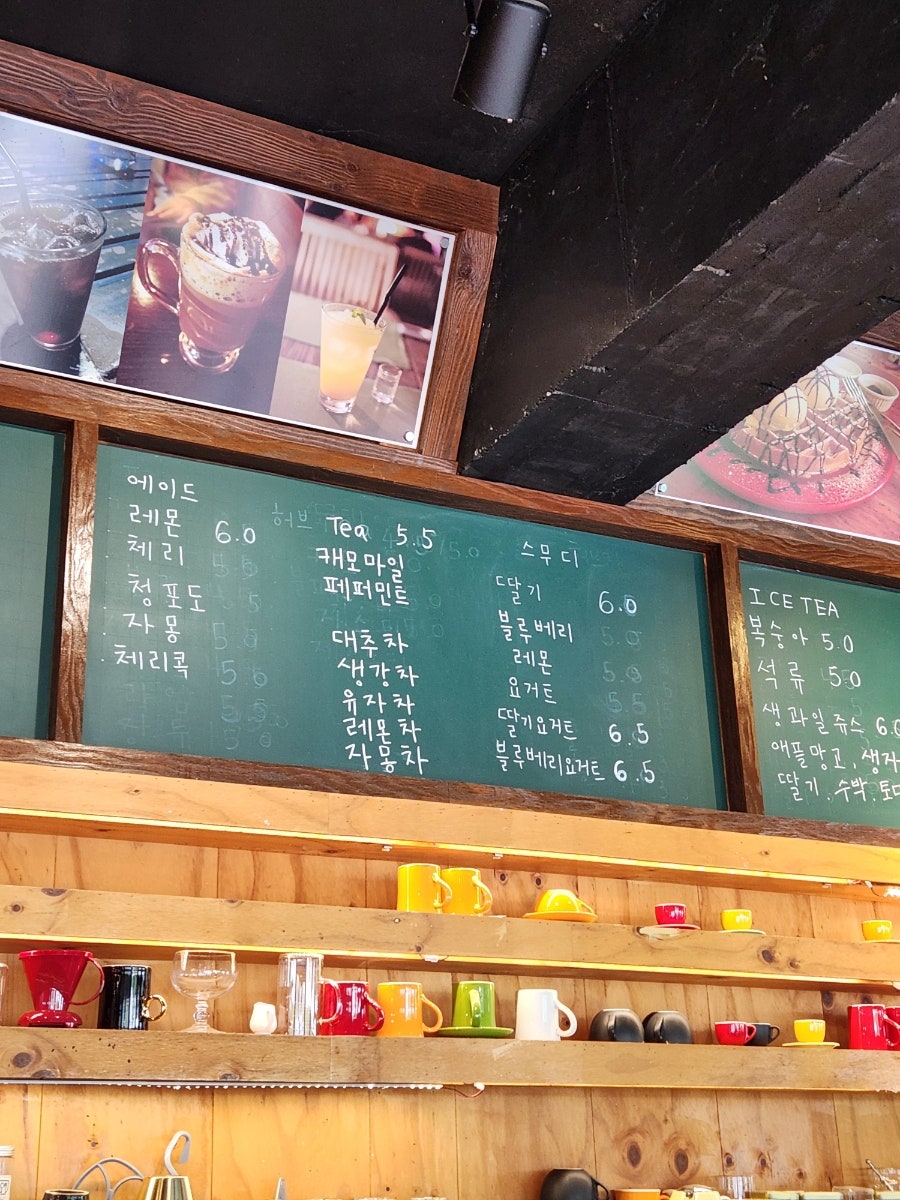 에이드
레몬 6.0
체리
청포도
자몽
체리콕
허브 Tea 5.5
캐모마일
페퍼민트
대추차
생강차
유자차
레몬차
자몽차
스무디
딸기 6.0
블루베리
레몬
요거트
딸기요거트 6.5
블루베리요거트 6.5
ICE TEA
복숭아 5.0
석류 5.0
생과일쥬스 6.0
애플망고, 생자
딸기, 수박, 토마